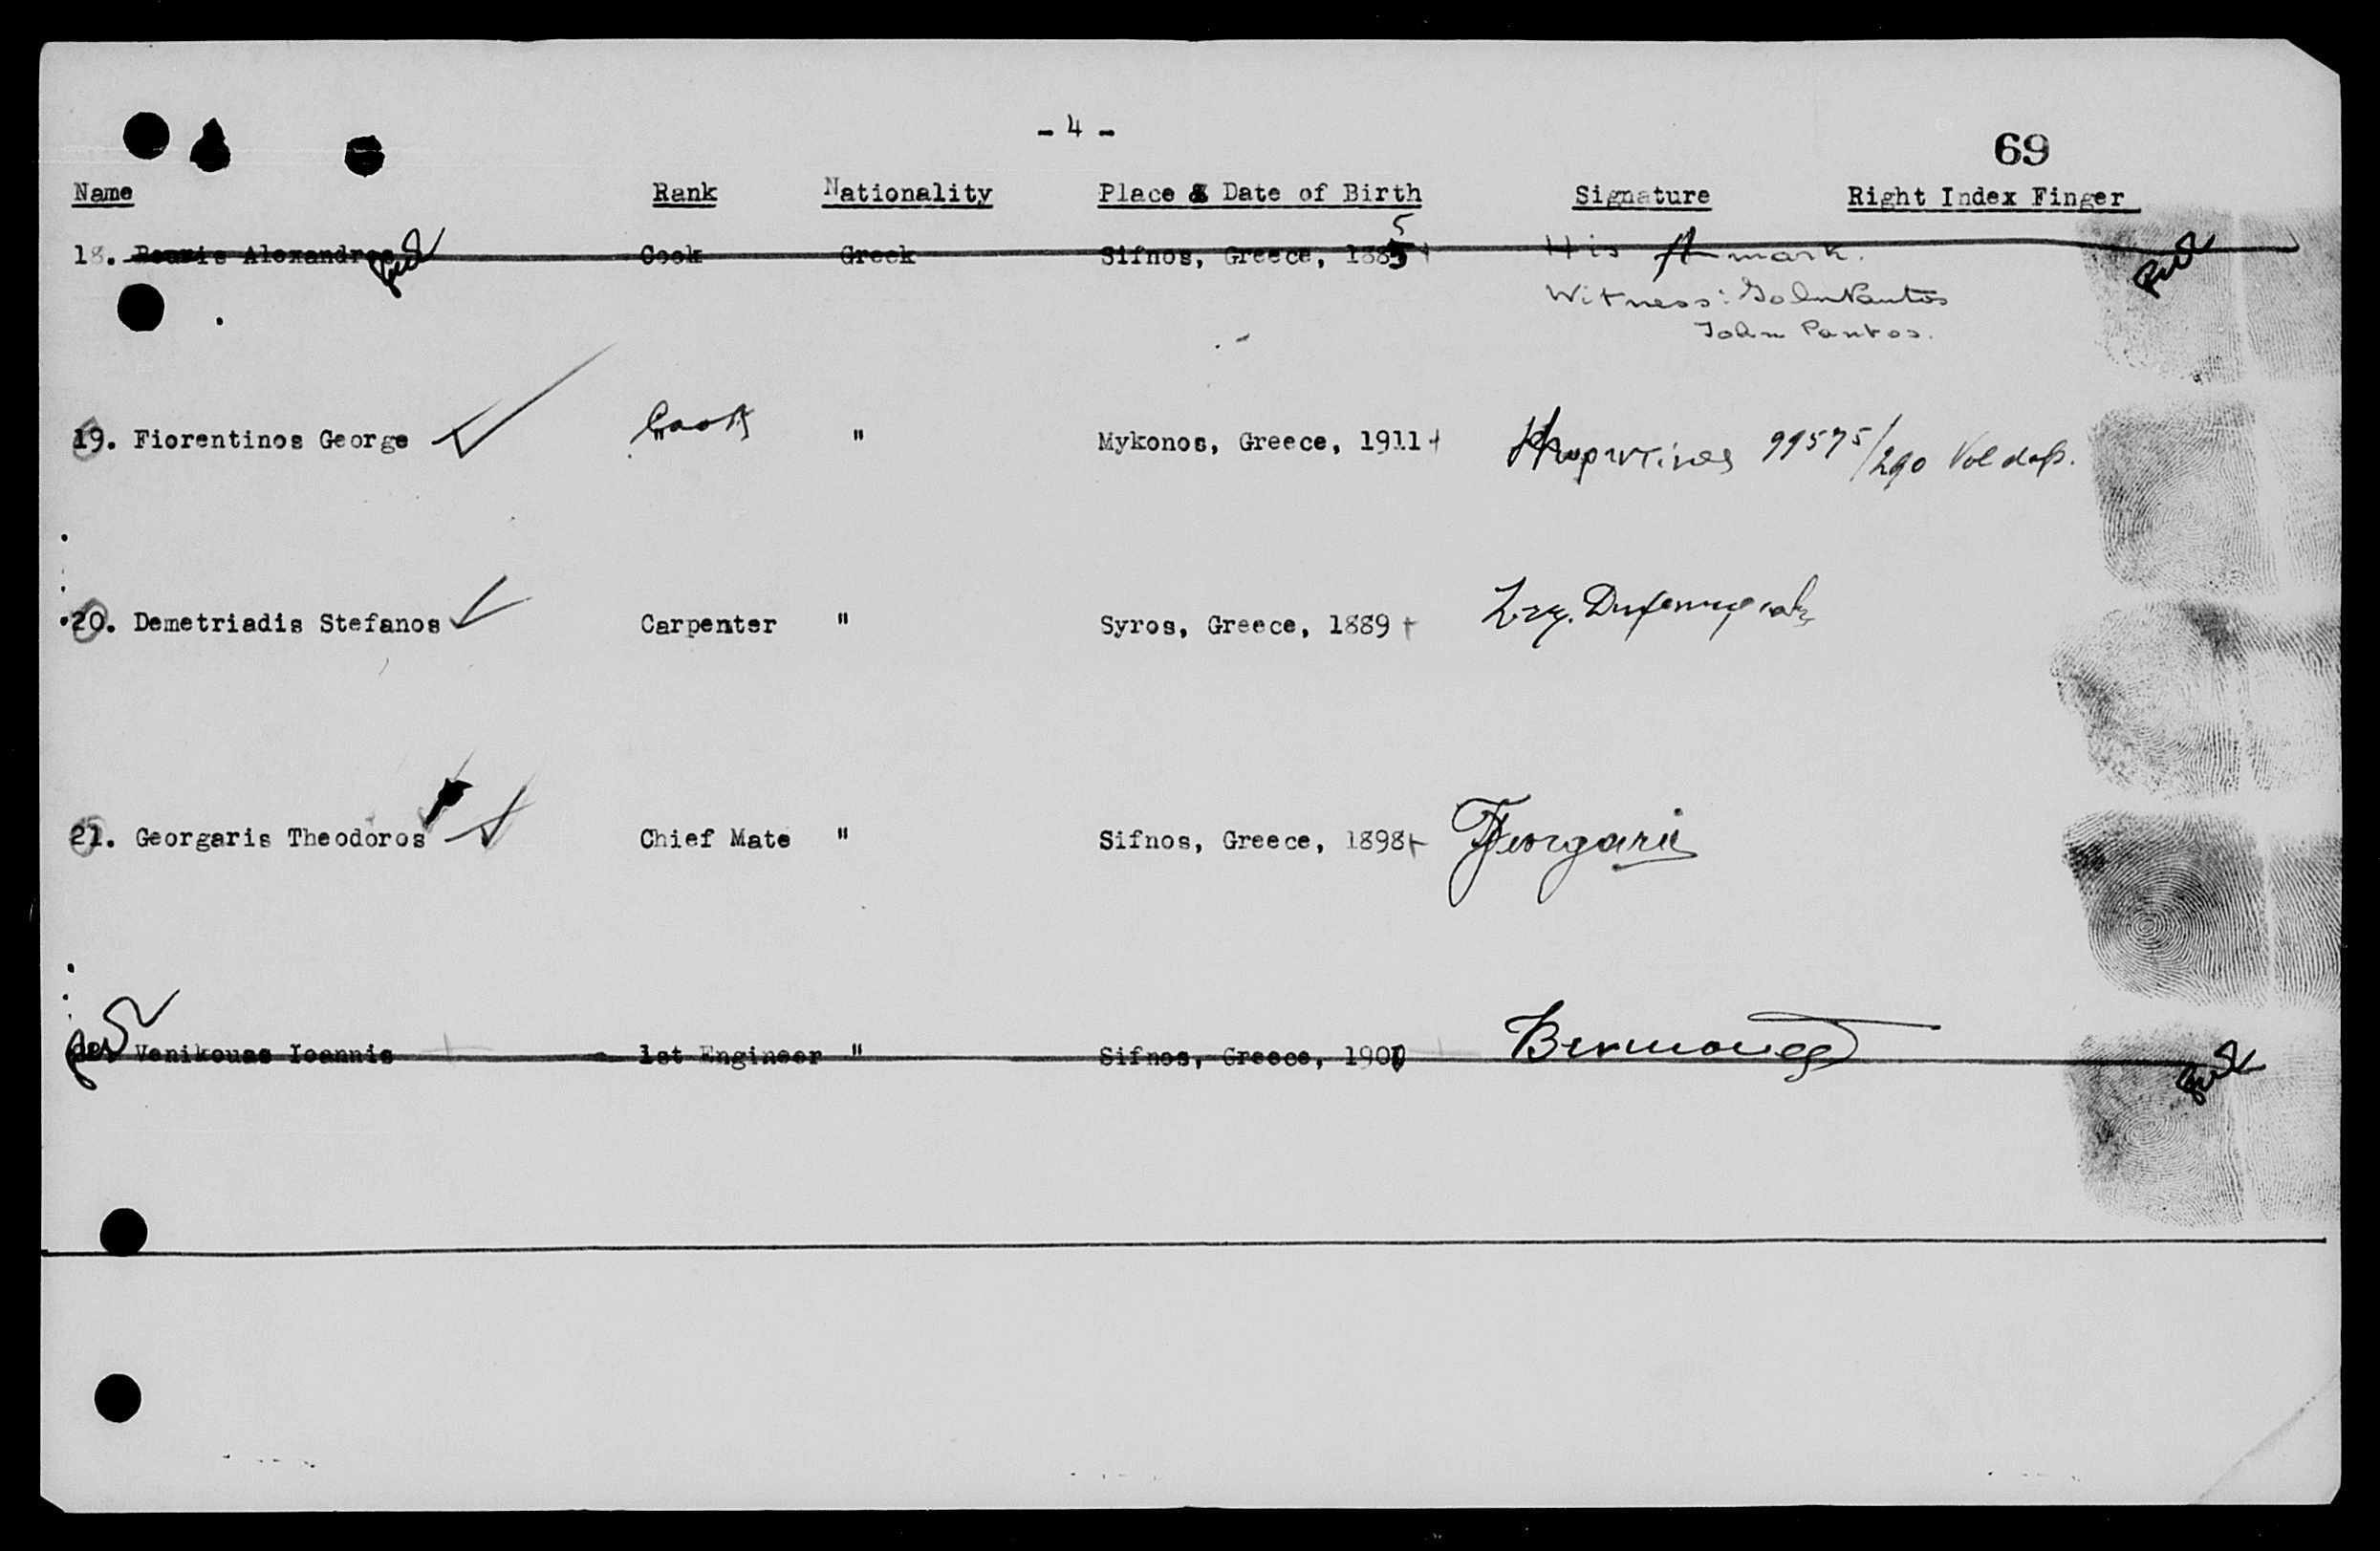 - 4 -
69
Name Rank Nationality Place & Date of Birth Signature Right Index Finger
18. Alexandros Cook Greek Sifnos, Greece, 1885 His A mark.
Witness: John Pantos
John Pantos.
19. Fiorentinos George Cook " Mykonos, Greece, 1911 99575/290
20. Demetriadis Stefanos Carpenter " Syros, Greece, 1889
21. Georgaris Theodoros Chief Mate " Sifnos, Greece, 1898 TGeorgaris
Venikouas Ioannis 1st Engineer " Sifnos, Greece,